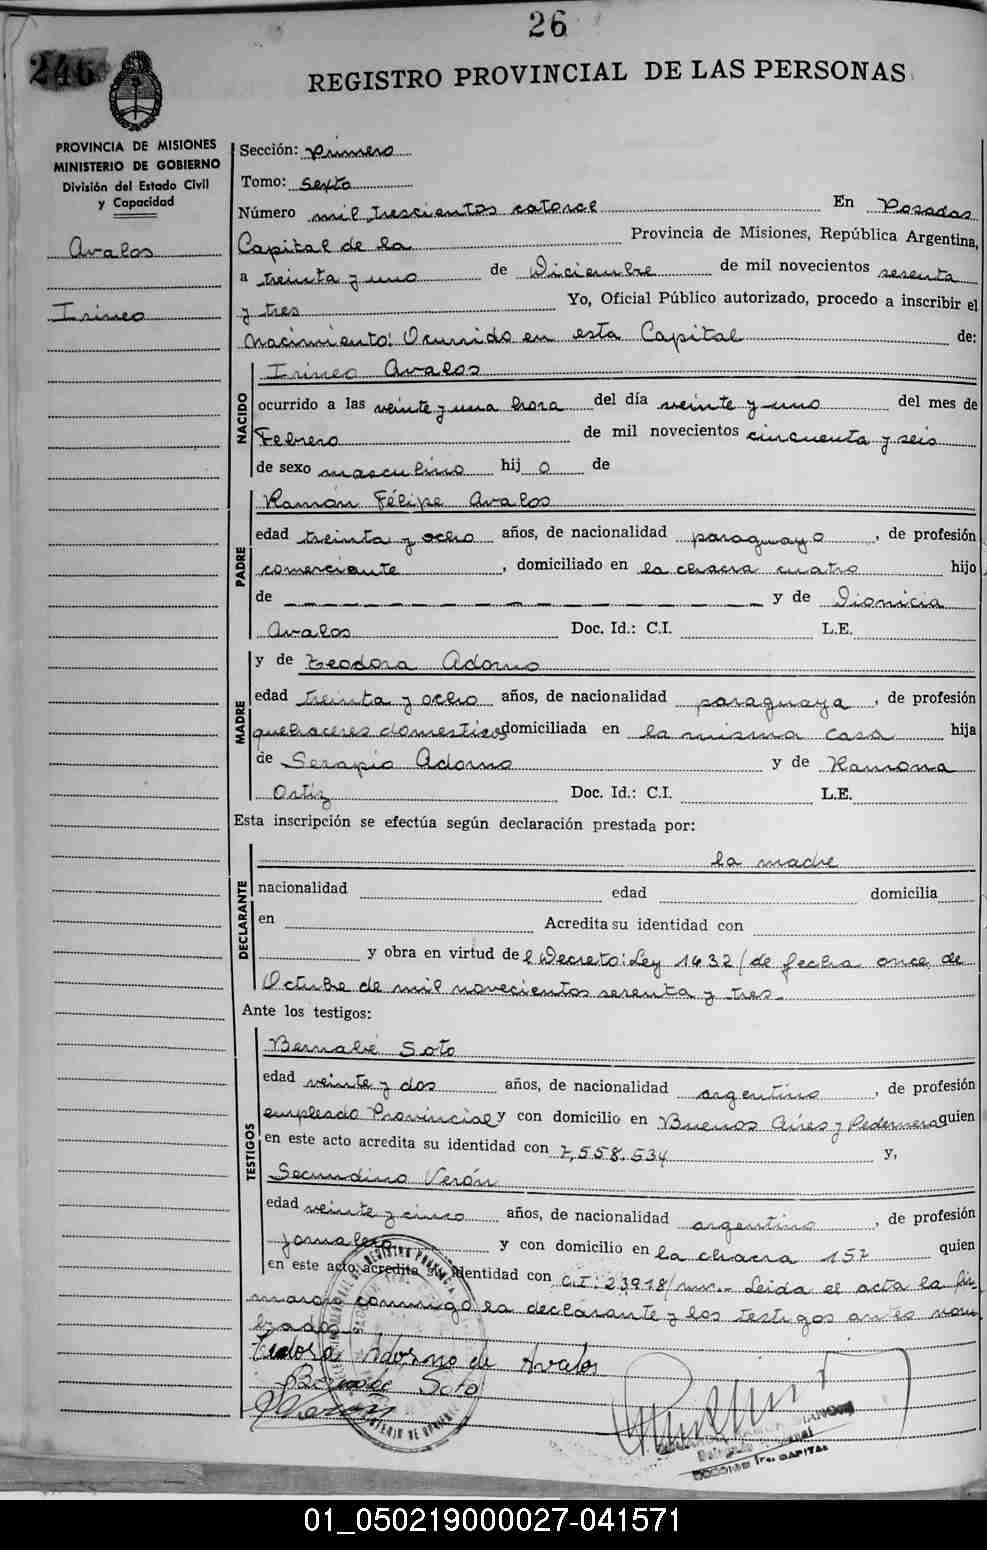 26
246
REGISTRO PROVINCIAL DE LAS PERSONAS
PROVINCIA DE MISIONES
MINISTERIO DE GOBIERNO
División del Estado Civil
y Capacidad
Avalos
Irineo
Sección: Primero
Tomo: Sexto
Número mil trescientos catorce En Posadas
Capital de la Provincia de Misiones, República Argentina,
a treinta y uno de Diciembre de mil novecientos sesenta
y tres Yo, Oficial Público autorizado, procedo a inscribir el
Nacimiento: Ocurrido en esta Capital de:
NACIDO
Irineo Avalos
ocurrido a las veinte y una hora del día veinte y uno del mes de
Febrero de mil novecientos cincuenta y seis
de sexo masculino hij o de
PADRE
Ramón Félipe Avalos
edad treinta y ocho años, de nacionalidad paraguayo, de profesión
comerciante, domiciliado en la chacra cuatro hijo
de y de Dionicia
Avalos Doc. Id.: C.I. L.E.
MADRE
y de Teodora Adorno
edad treinta y ocho años, de nacionalidad paraguaya, de profesión
quehaceres domesticos domiciliada en la misma casa hija
de Serapio Adorno y de Ramona
Ortiz Doc. Id.: C.I. L.E.
Esta inscripción se efectúa según declaración prestada por:
DECLARANTE
la madre
nacionalidad edad domicilia
en Acredita su identidad con
y obra en virtud de l Decreto: Ley 1432/de fecha once de
Octubre de mil novecientos sesenta y tres.
Ante los testigos:
TESTIGOS
Bernabé Soto
edad veinte y dos años, de nacionalidad argentino, de profesión
empleado Provincial y con domicilio en Buenos Aires y Pedernera quien
en este acto acredita su identidad con 7,558.534 y,
Secundino Verón
edad veinte y cinco años, de nacionalidad argentino, de profesión
jornalero y con domicilio en la chacra 157 quien
en este acto acredita su identidad con C.I: 23918/ Leida el acta la fir-
maron conmigo la declarante y los testigos antes nom
brados
Tedora Adorno de Avalos
Bernabé Soto
Verón
CAPITAL
01_050219000027-041571